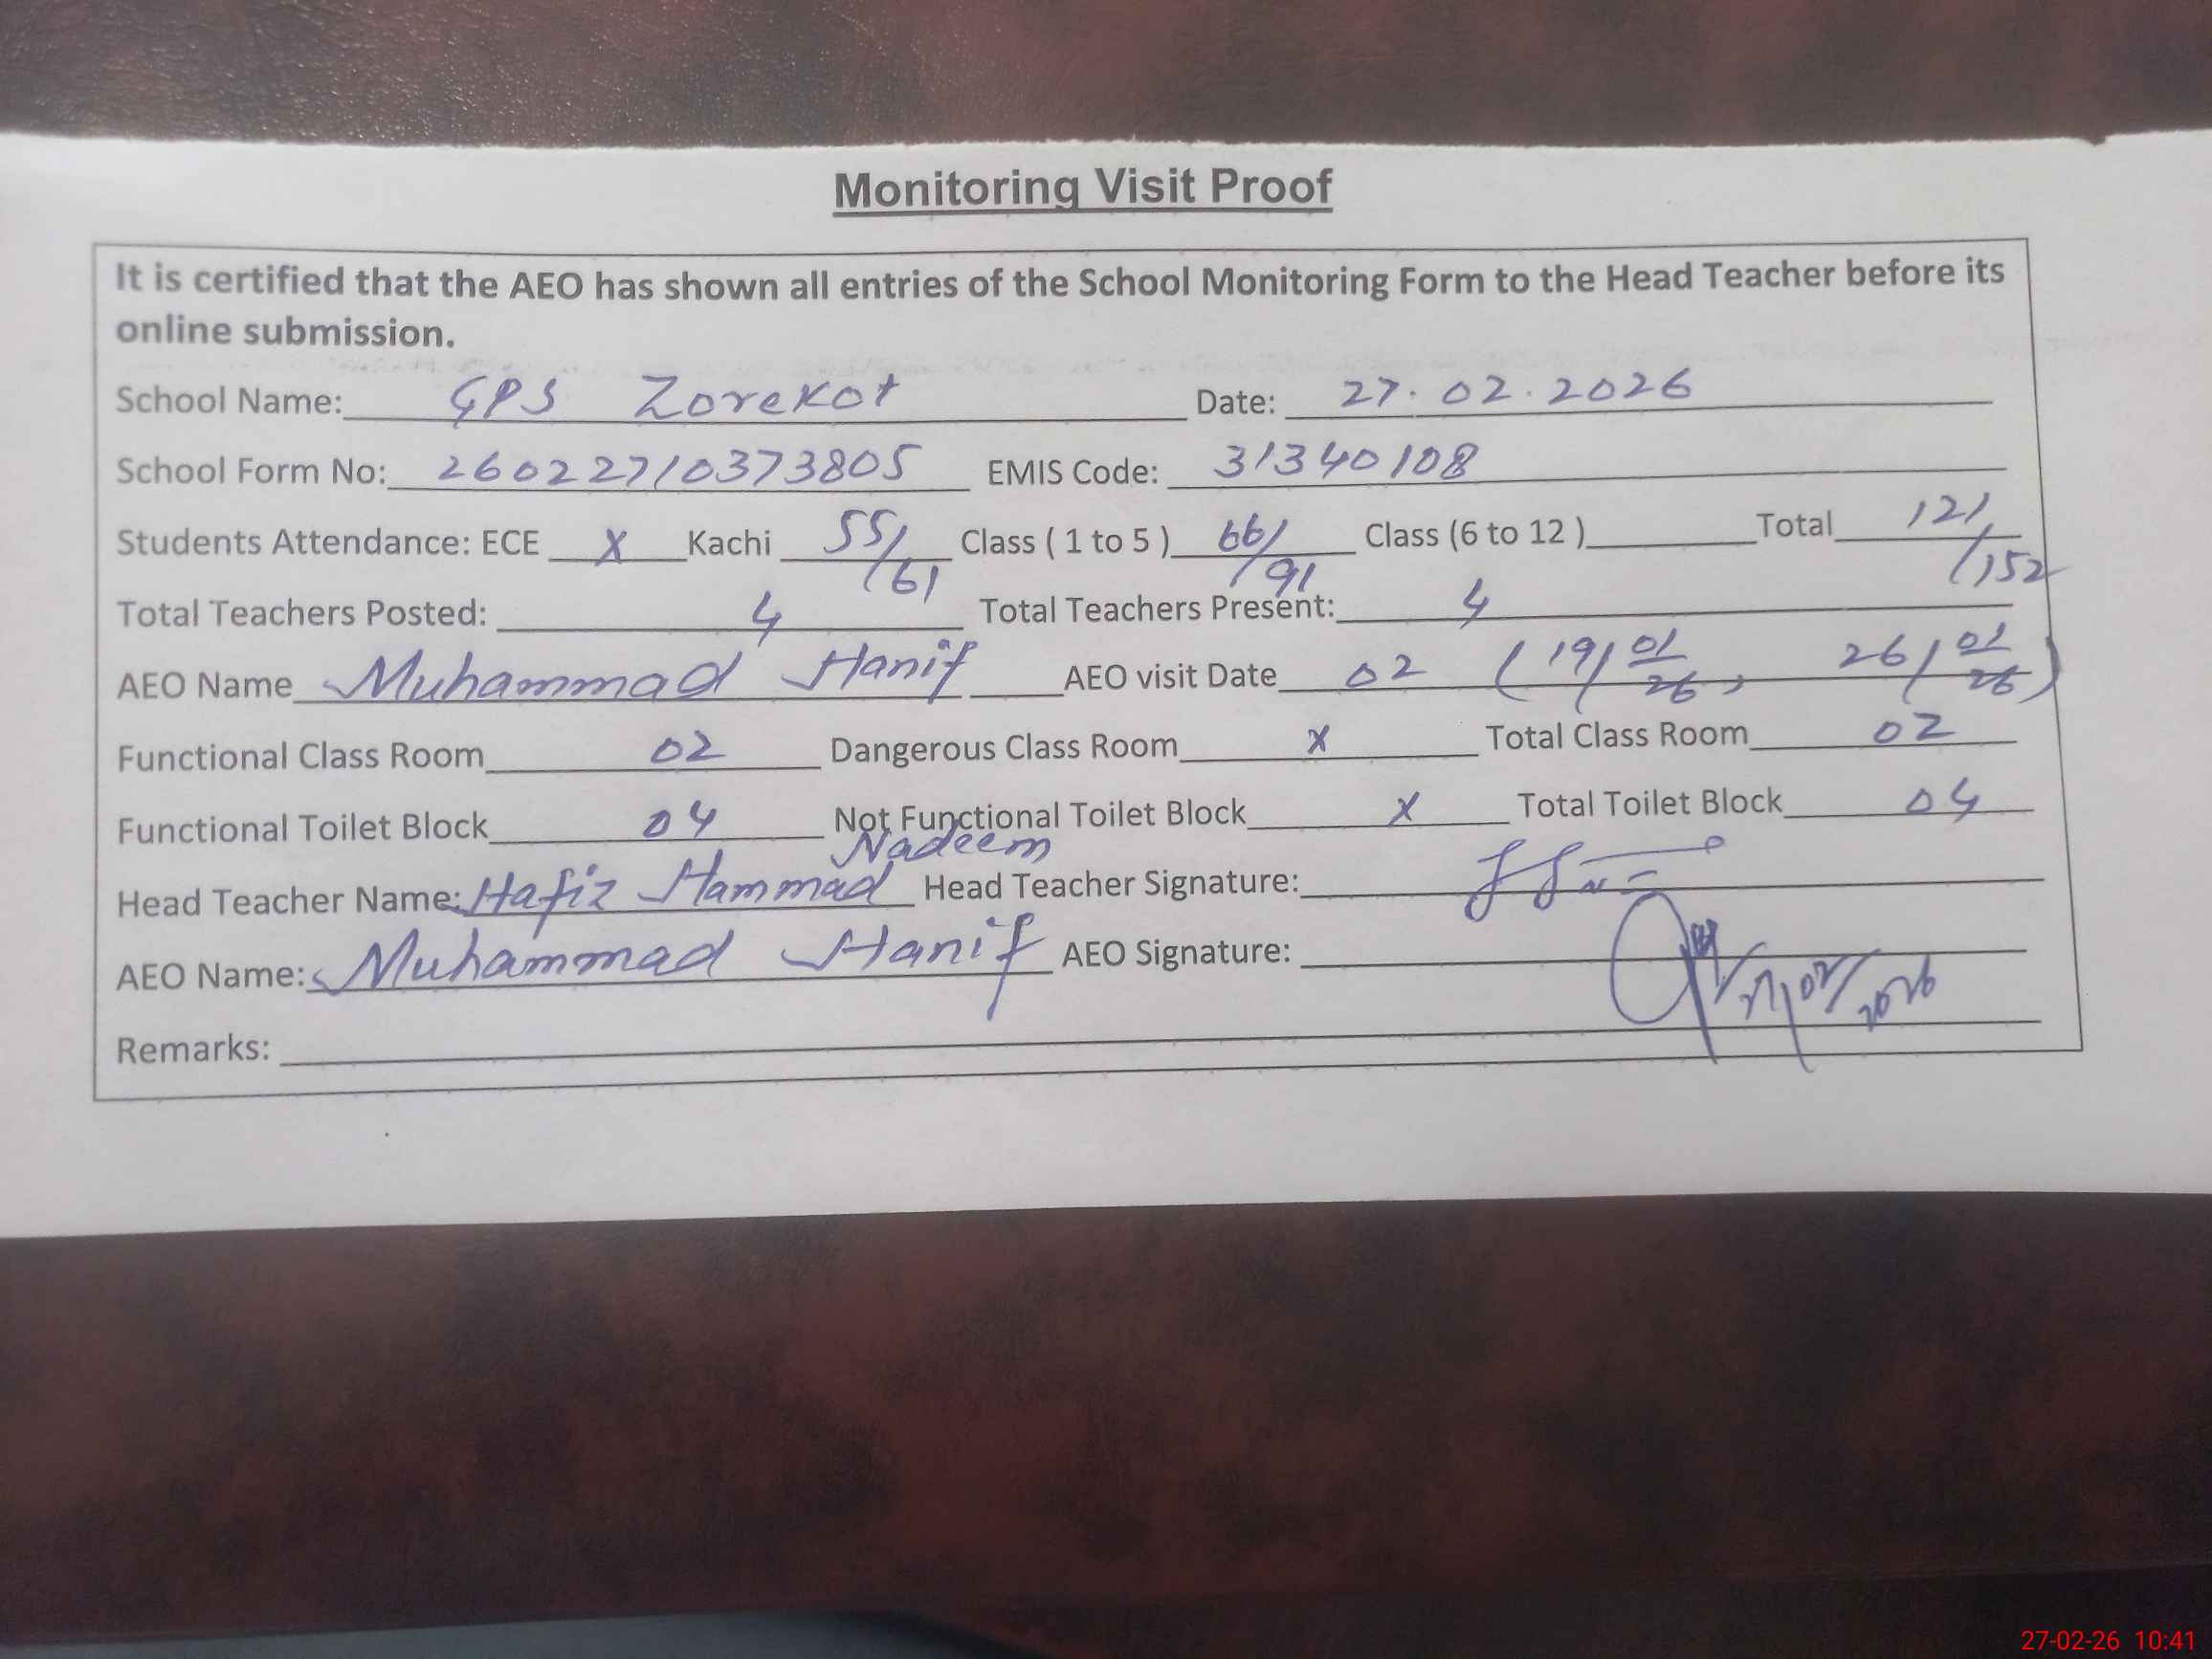 Monitoring Visit Proof
It is certified that the AEO has shown all entries of the School Monitoring Form to the Head Teacher before its
online submission.
School Name: GPS Zorekot Date: 27.02.2026
School Form No: 26022710373805 EMIS Code: 31340108
Students Attendance: ECE X Kachi 55/61 Class ( 1 to 5 ) 66/91 Class (6 to 12 ) Total 121/152
Total Teachers Posted: 4 Total Teachers Present: 4
AEO Name Muhammad Hanif AEO visit Date 02 (19/01/26, 26/01/26)
Functional Class Room 02 Dangerous Class Room X Total Class Room 02
Functional Toilet Block 04 Not Functional Toilet Block X Total Toilet Block 04
Head Teacher Name: Hafiz Hammad Nadeem Head Teacher Signature:
AEO Name: Muhammad Hanif AEO Signature: 27/02/2026
Remarks:
27-02-26 10:41